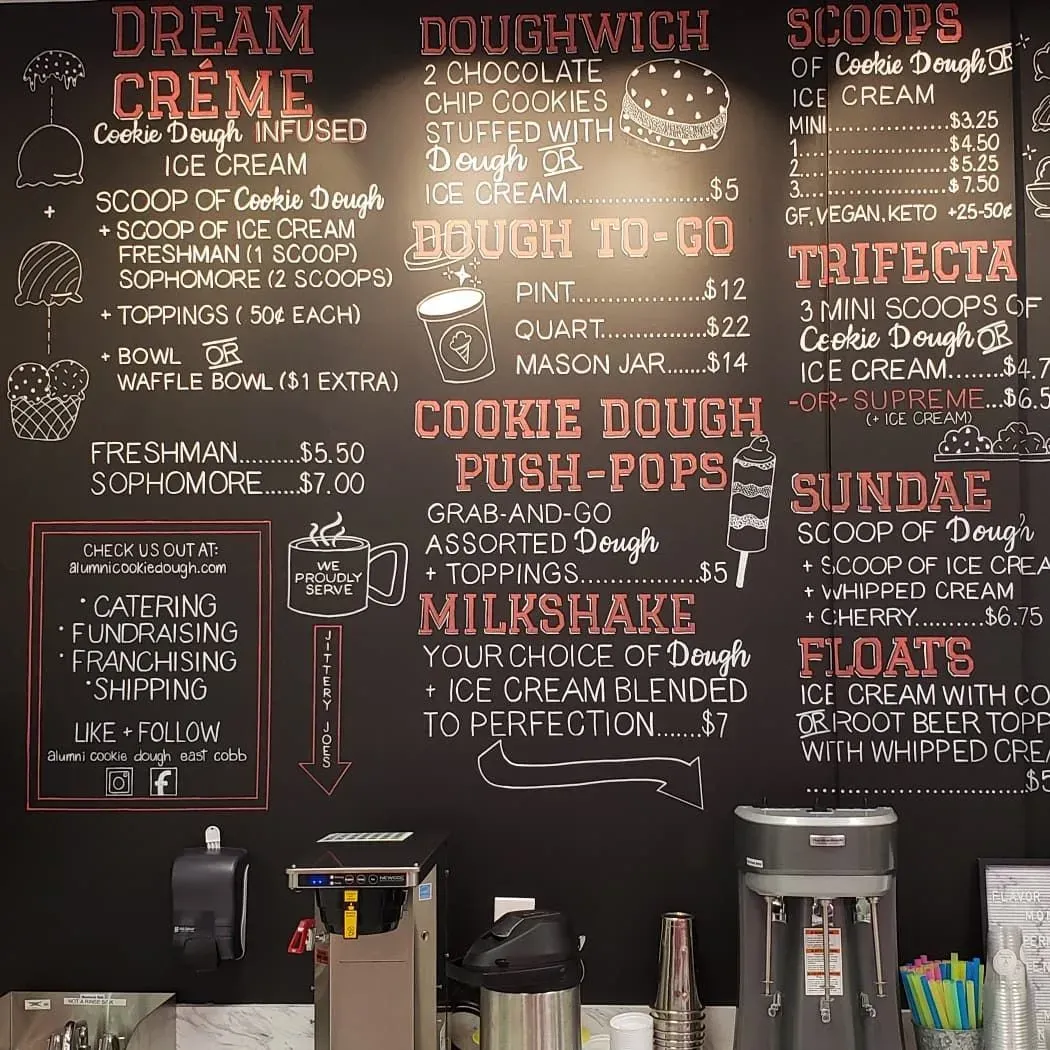 DREAM
CRÉME
Cookie Dough INFUSED
ICE CREAM
SCOOP OF Cookie Dough
+ SCOOP OF ICE CREAM
FRESHMAN (1 SCOOP)
SOPHOMORE (2 SCOOPS)
+ TOPPINGS ( 50¢ EACH)
+ BOWL OR
WAFFLE BOWL ($1 EXTRA)
FRESHMAN..........$5.50
SOPHOMORE......$7.00
CHECK US OUT AT:
alumnicookiedough.com
• CATERING
• FUNDRAISING
• FRANCHISING
• SHIPPING
LIKE + FOLLOW
alumni cookie dough east cobb
WE
PROUDLY
SERVE
JITTERY JOES
DOUGHWICH
2 CHOCOLATE
CHIP COOKIES
STUFFED WITH
Dough OR
ICE CREAM....................$5
DOUGH TO-GO
PINT......................$12
QUART.................$22
MASON JAR.......$14
COOKIE DOUGH
PUSH-POPS
GRAB-AND-GO
ASSORTED Dough
+ TOPPINGS.................$5
MILKSHAKE
YOUR CHOICE OF Dough
+ ICE CREAM BLENDED
TO PERFECTION.......$7
SCOOPS
OF Cookie Dough OR
ICE CREAM
MINI....................$3.25
1..........................$4.50
2.........................$5.25
3.........................$7.50
GF, VEGAN, KETO +25-50¢
TRIFECTA
3 MINI SCOOPS OF
Cookie Dough OR
ICE CREAM........$4.7
-OR- SUPREME...$6.5
(+ ICE CREAM)
SUNDAE
SCOOP OF Dough
+ SCOOP OF ICE CREA
+ WHIPPED CREAM
+ CHERRY..........$6.75
FLOATS
ICE CREAM WITH CO
OR ROOT BEER TOPP
WITH WHIPPED CREA
..............................$5
NEWCO
NOT A RINSE SINK